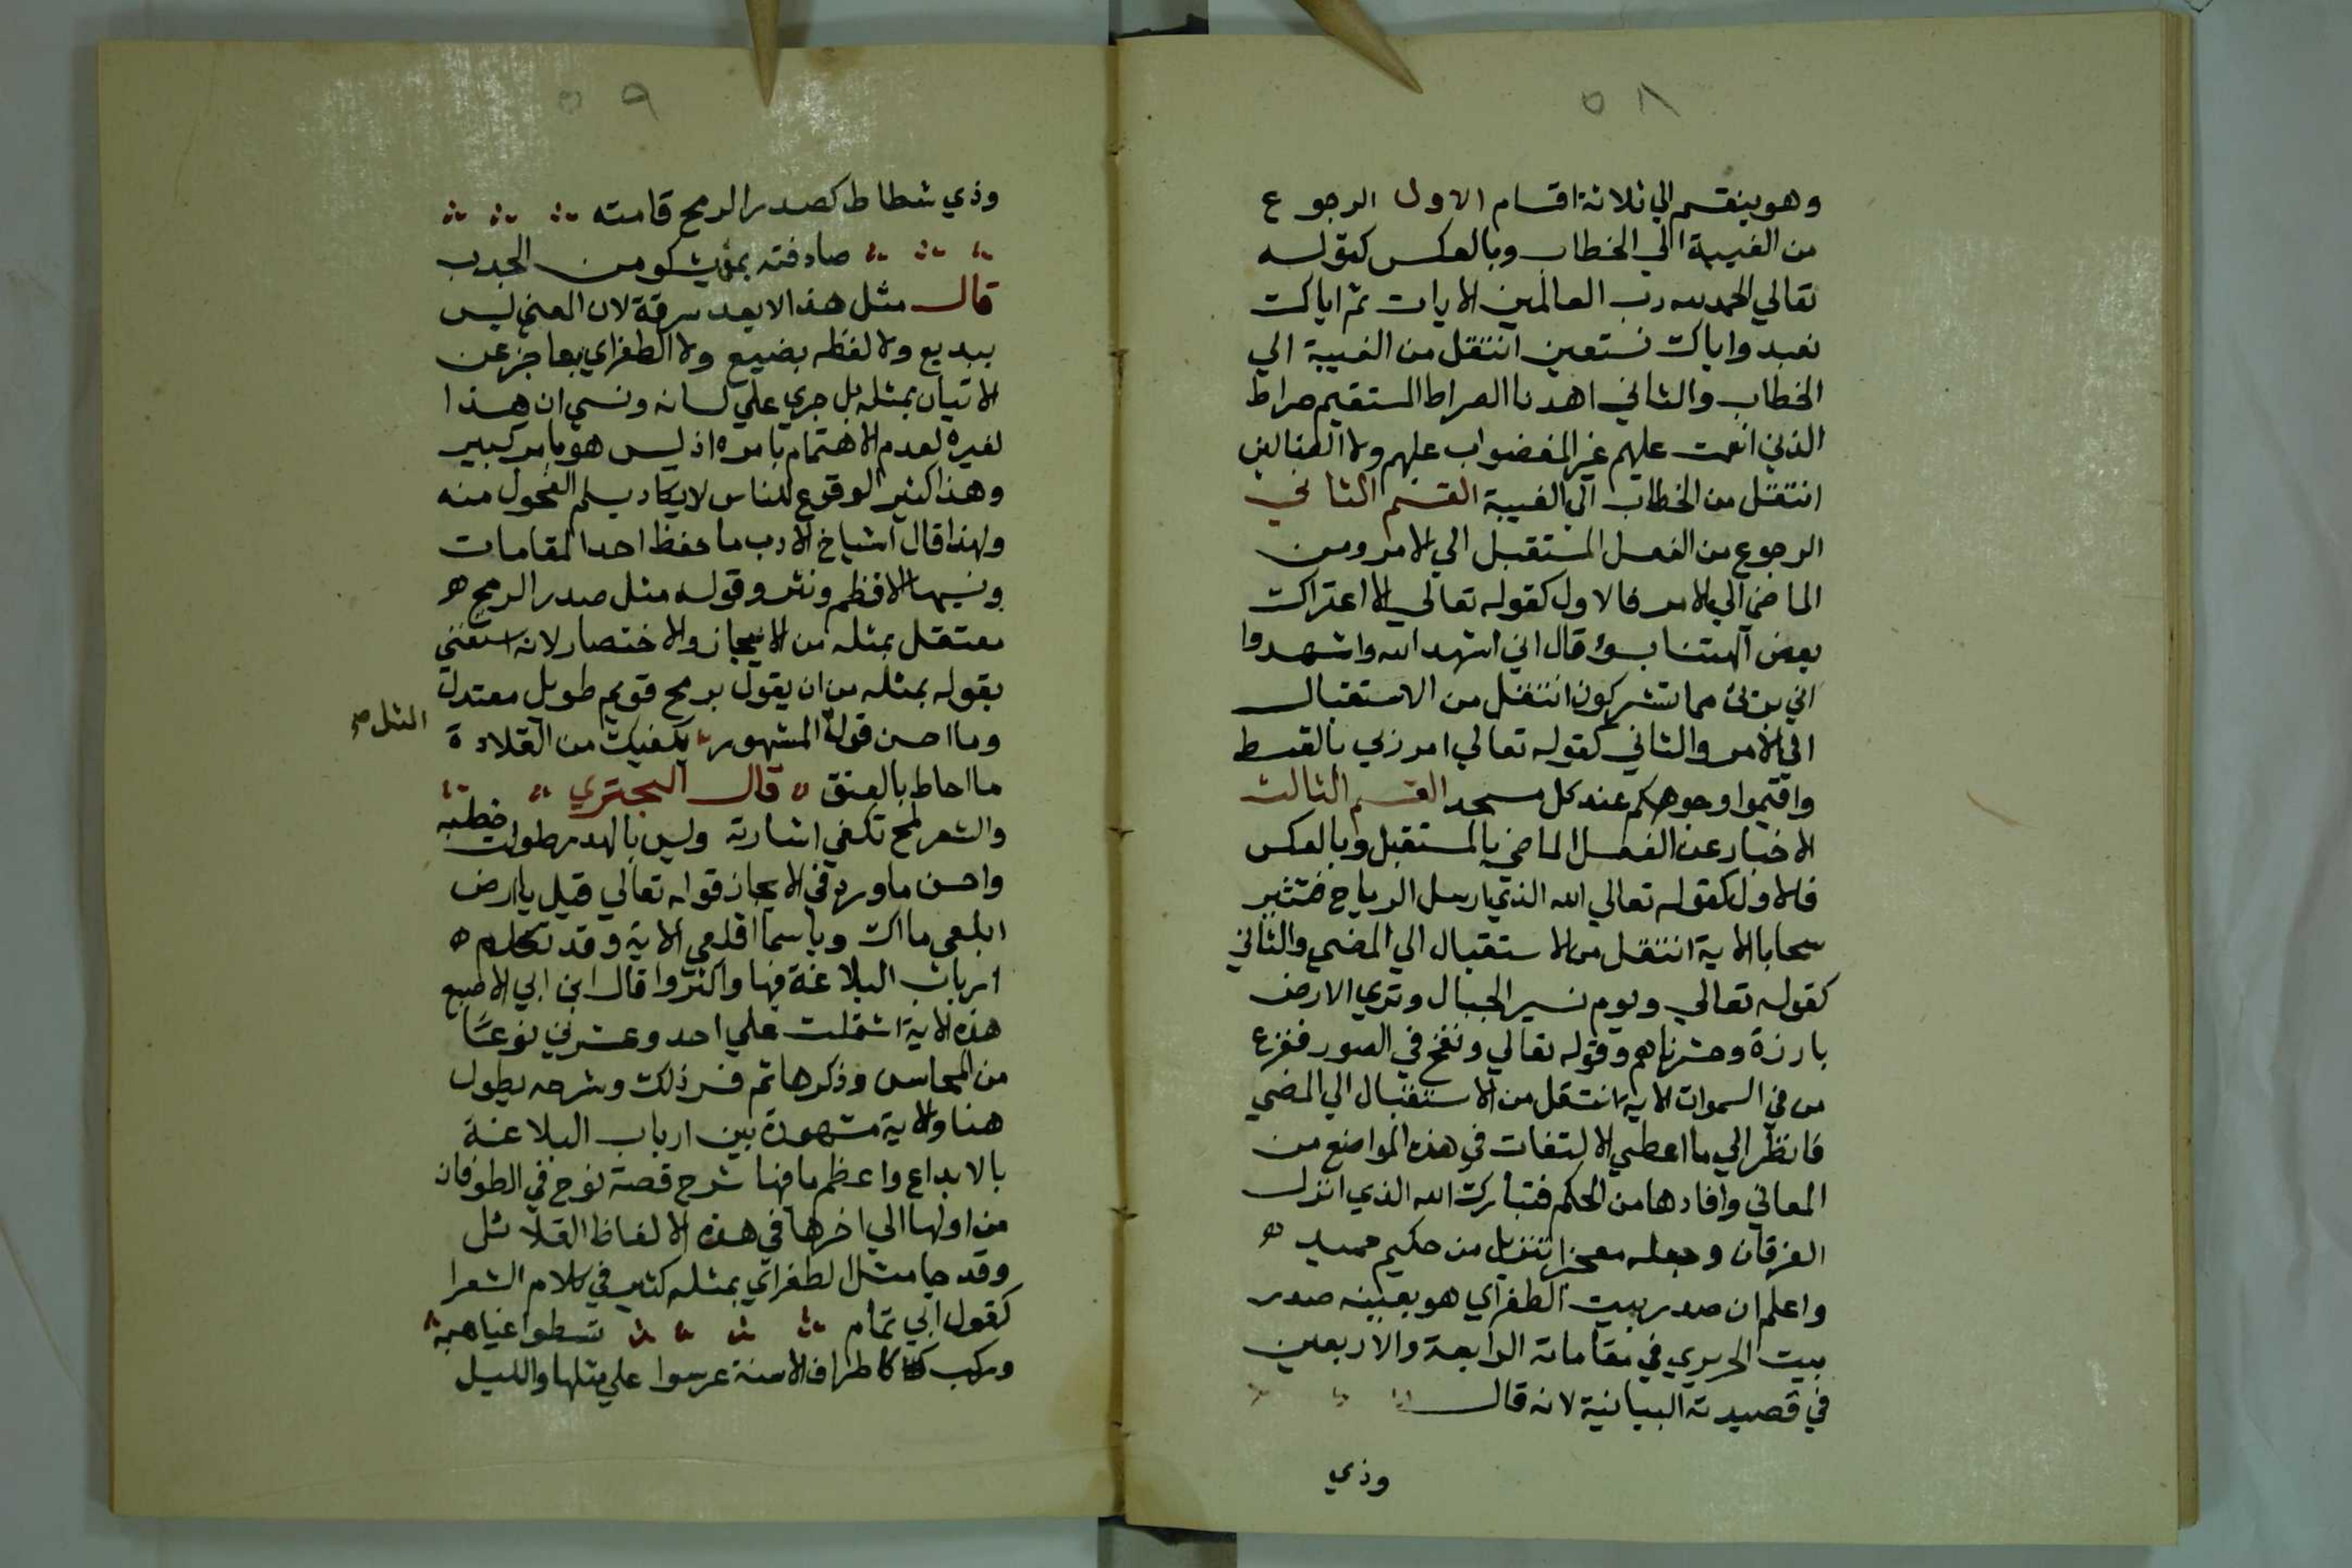 ٥٨
وهو ينقسم الي ثلاثة اقسام الاول الرجوع
من الغيبة الي الخطاب وبالعكس كقوله
تعالي الحمد لله رب العالمين الايات ثم اياك
نعبد واياك نستعين انتقل من الغيبة الي
الخطاب والثاني اهدنا الصراط المستقيم صراط
الذين انعمت عليهم غير المغضواب عليهم ولا الضالين
انتقل من الخطاب الي الغيبة القسم الثاني
الرجوع من الفعل المستقبل الي الامر ومن
الماضي الي الامر فالاول كقوله تعالي الا اعتراك
بعض الهتنا بسوء قال اني اشهد الله واشهدوا
اني برئ مما تشركون انتقل من الاستقبال
الي الامر والثاني كقوله تعالي امر ربي بالقسط
واقيموا وجوهكم عند كل مسجد القسم الثالث
الاخبار عن الفعل الماضي بالمستقبل وبالعكس
فالاول كقوله تعالي الله الذي ارسل الرياح فتثير
سحابا الاية انتقل من الاستقبال الي المضي والثاني
كقوله تعالي ويوم نسير الجبال وتري الارض
بارزة وحشرناهم وقوله تعالي ونفخ في الصور ففزع
من في السموات الاية انتقل من الاستقبال الي المضي
فانظر الي ما اعطي الالتفات في هذه المواضع من
المعاني وافادها من الحكم فتبارك الله الذي انزل
الفرقان وجعله معجزا تنزيل من حكيم حميد ه
واعلم ان صدر بيت الطغراي هو بعينه صدر
بيت الحريري في مقاماته الرابعة والاربعين
في قصيدته البيانية لانه قال
وذي
٥٩
وذي شطاط كصدر الرمح قامته
صادفته بمنى يشكو من الجدب
قال مثل هذا لا يعد سرقة لان المعني ليس
ببديع ولا لفظه بضيع ولا الطغراي بعاجز عن
الاتيان بمثله بل جري علي لسانه ونسي ان هذا
لغيره لعدم الاهتمام بامره اذ ليس هو بامر كبير
وهذا كثير الوقوع للناس لا يكاد يسلم الفحول منه
ولهذا قال اشياخ الادب ما حفظ احد المقامات
ونسيها الا نظم ونثر وقوله مثل صدر الرمح ه
معتقل بمثله من الايجاز والاختصار لانه استغني
بقوله بمثله من ان يقول برمح قويم طويل معتدل
وما احسن قوله المشهور يكفيك من القلادة
المثل صح
ما احاط بالعنق قال البحتري
والشعر لمح تكفي اشارته وليس بالهدر طولت خطبه
واحسن ما ورد في الايجاز قوله تعالي قيل يا ارض
ابلعي ماك ويا سما اقلعي الاية وقد تكلم ه
ارباب البلاغة فيها واكثروا قال ابن ابي الاصبع
هذه الاية اشتملت علي احد وعشرين نوعا
من المحاسن وذكرها ثم فسر ذلك وشرحه يطول
هنا والاية مشهورة بين ارباب البلاغة
بالابداع واعظم ما فيها شرح قصة نوح في الطوفان
من اولها الي اخرها في هذه الالفاظ القلائل
وقد جا مثل الطغراي بمثله كثير في كلام الشعرا
كقول ابي تمام تسطوا غياهبه
وركب كاطراف الاسنة عرسوا علي مثلها والليل